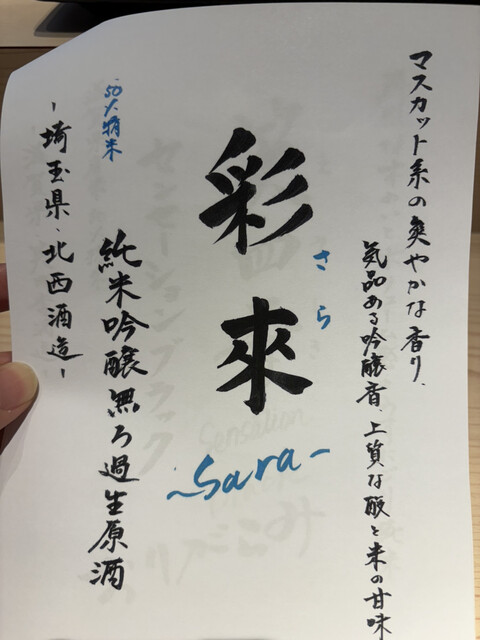 マスカット系の爽やかな香り、
気品ある吟醸香、上質な酸と米の甘味
彩來
さら
~Sara~
純米吟醸無ろ過生原酒
50%精米
-埼玉県、北西酒造-